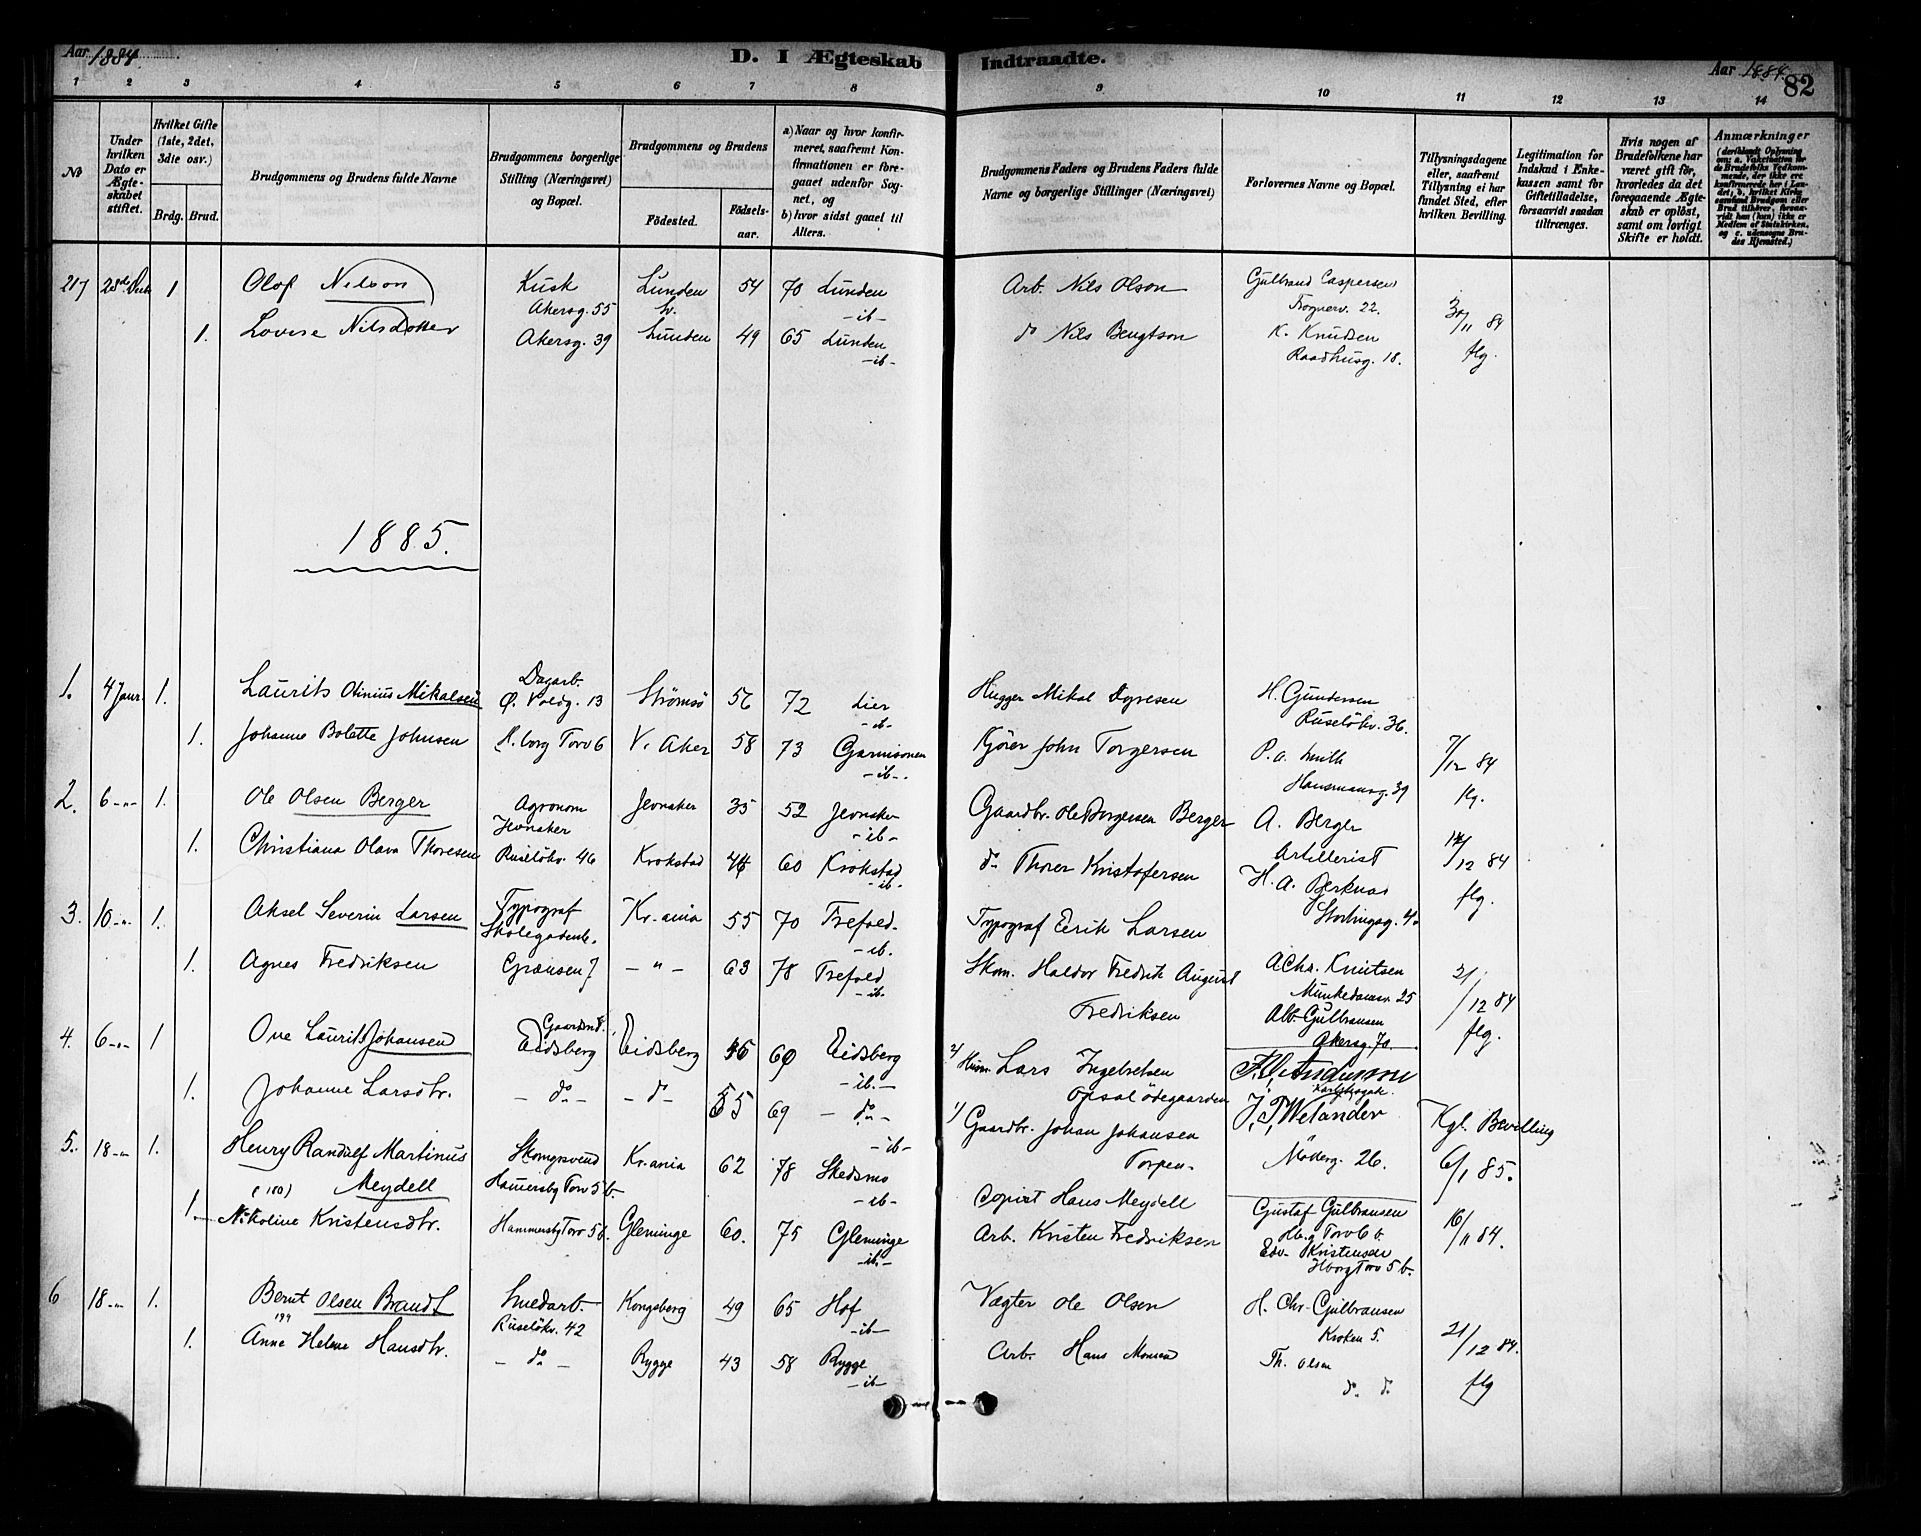 Aar 1884. D. I Ægteskab Indtraadte. Aar 1884. 82
1 2 3 4 5 6 7 8 9 10 11 12 13 14
No
Under hvilken Dato er Ægteskabet stiftet.
Hvilket Gifte (1ste, 2det, 3die osv.)
Brdg. Brud.
Brudgommens og Brudens fulde Navne
Brudgommens borgerlige Stilling (Næringsvei) og Bopæl.
Brudgommens og Brudens
Fødested. Fødselsaar.
a) Naar og hvor konfirmeret, saafremt Konfirmationen er foregaaet udenfor Sognet, og
b) hvor sidst gaaet til Alters.
Brudgommens Faders og Brudens Faders fulde Navne og borgerlige Stillinger (Næringsvei)
Forlovernes Navne og Bopæl.
Tillysningsdagene eller, saafremt Tillysning ei har fundet Sted, efter hvilken Bevilling.
Legitimation for Indskud i Enkekassen samt for Giftetilladelse, forsaavidt saadan tiltrænges.
Hvis nogen af Brudefolkene har været gift før, hvorledes da det foregaaende Ægteskab er opløst, samt om lovligt Skifte er holdt.
Anmærkninger (deriblandt Oplysning om: a. Vaksination for de Brudefolks Vedkommende, der ikke ere konfirmerede her i Landet, b. hvilket Kirkesamfund Brudgom eller Brud tilhører, forsaavidt han (hun) ikke er Medlem af Statskirken, og c. udensogns Brudes Hjemsted.)
217 28de Decb 1 Olof Nilson Kusk Lunden 54 70 Lunden Arb. Nils Olson Gulbrand Caspersen
Akersg. 55 -ib- Frognerv. 22. 30/11 84
1. Lovise Nilsdotter Akersg. 39 Lunden 49 65 Lunden do Nils Bengtson K. Knudsen
-ib- Raadhusg. 18. flg.
1885.
1. 4 Janr. 1. Laurits Otinius Mikalsen Dagarb. Strømsö 56 72 Lier Hugger Mikal H. Gundersen
Ø. Voldg. 13 -ib- Ruselökv. 36.
1. Johanne Bolette Johnsen H.borg Torv 6 V. Aker 58 73 Garnisonen Kjörer John Torgersen P. A. Smith 7/12 84
-ib-. Hausmansg. 39 flg.
2. 6-"- 1. Ole Olsen Berger Agronom Jevnaker 35 52 Jevnaker Gaardbr. Ole Borgersen Berger A. Berger
Jevnaker -ib- Artillerist 14/12 84
1. Christiana Olava Thoresen Ruselökv. 46 Krokstad 44 60 Krokstad do Thorer Kristofersen H. A. Berknas
-ib- Storthingsg. 4. flg.
3. 10-"- 1. Aksel Severin Larsen Typograf Kr.ania 55 70 Trefold. Typograf Eerik Larsen
-ib.
1. Agnes Fredriksen Grænsen 7 -"- 63 78 Trefold Skom. Haldor Fredrik August A Chr. Knutsen 21/12 84
-ib. Fredriksen Munkedamsv. 25
Alb. Gulbransen flg.
Akersg. 70.
4. 6-"- 1 Ove Laurits Johansen Gaardmd. Eidsberg Eidsberg 69 Eidsberg 2) Husm. Lars Ingebretsen
-ib- Opsal Ödegaarden
1. Johanne Larsdtr. -do- -do- 55 69 -do- 1) Gaardbr. Johan Johansen J. P. Welander Kgl. Bevilling
-ib- Torpen Möllerg. 26. 6/1 85.
5. 18-"- 1. Henry Randulf Martinius Skomgrsvend Kr.ania 62 78 Skedsmo Copist Hans Meydell
(180) Meydell Hamersbg Torv 5 b. -ib- Gustaf Gulbransen
1. Nikoline Kristensdtr. Hammersbg Torv 5 b. Gleminge 60. 75 Gleminge Arb. Kristen Fredriksen Hb.g Torv 6 b. 16/11 84.
-ib. Edv. Kristensen
Hborg Torv 5 b.
6 18-"- 1. Bernt Olsen Brandt Smedarb. Kongsberg 49 65 Hof Vægter Ole Olsen H. Chr. Gulbransen
Ruselökv. 42 -ib- Kroken 5. 21/12 84.
1. Anne Helene Hansdtr. -do- Rygge 43 58 Rygge Arb. Hans Monsen Th. Olsen
-ib- do. do flg